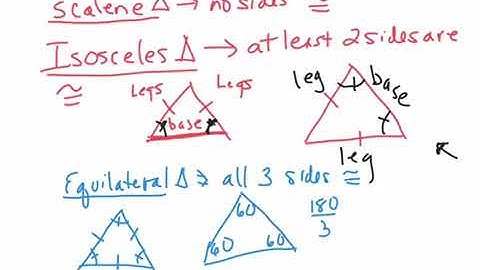 Scalene Δ → no sides ≅
Isosceles Δ → at least 2 sides are
≅
Legs Legs
base
leg base
leg
Equilateral Δ → all 3 sides ≅
60
60 60
180
3